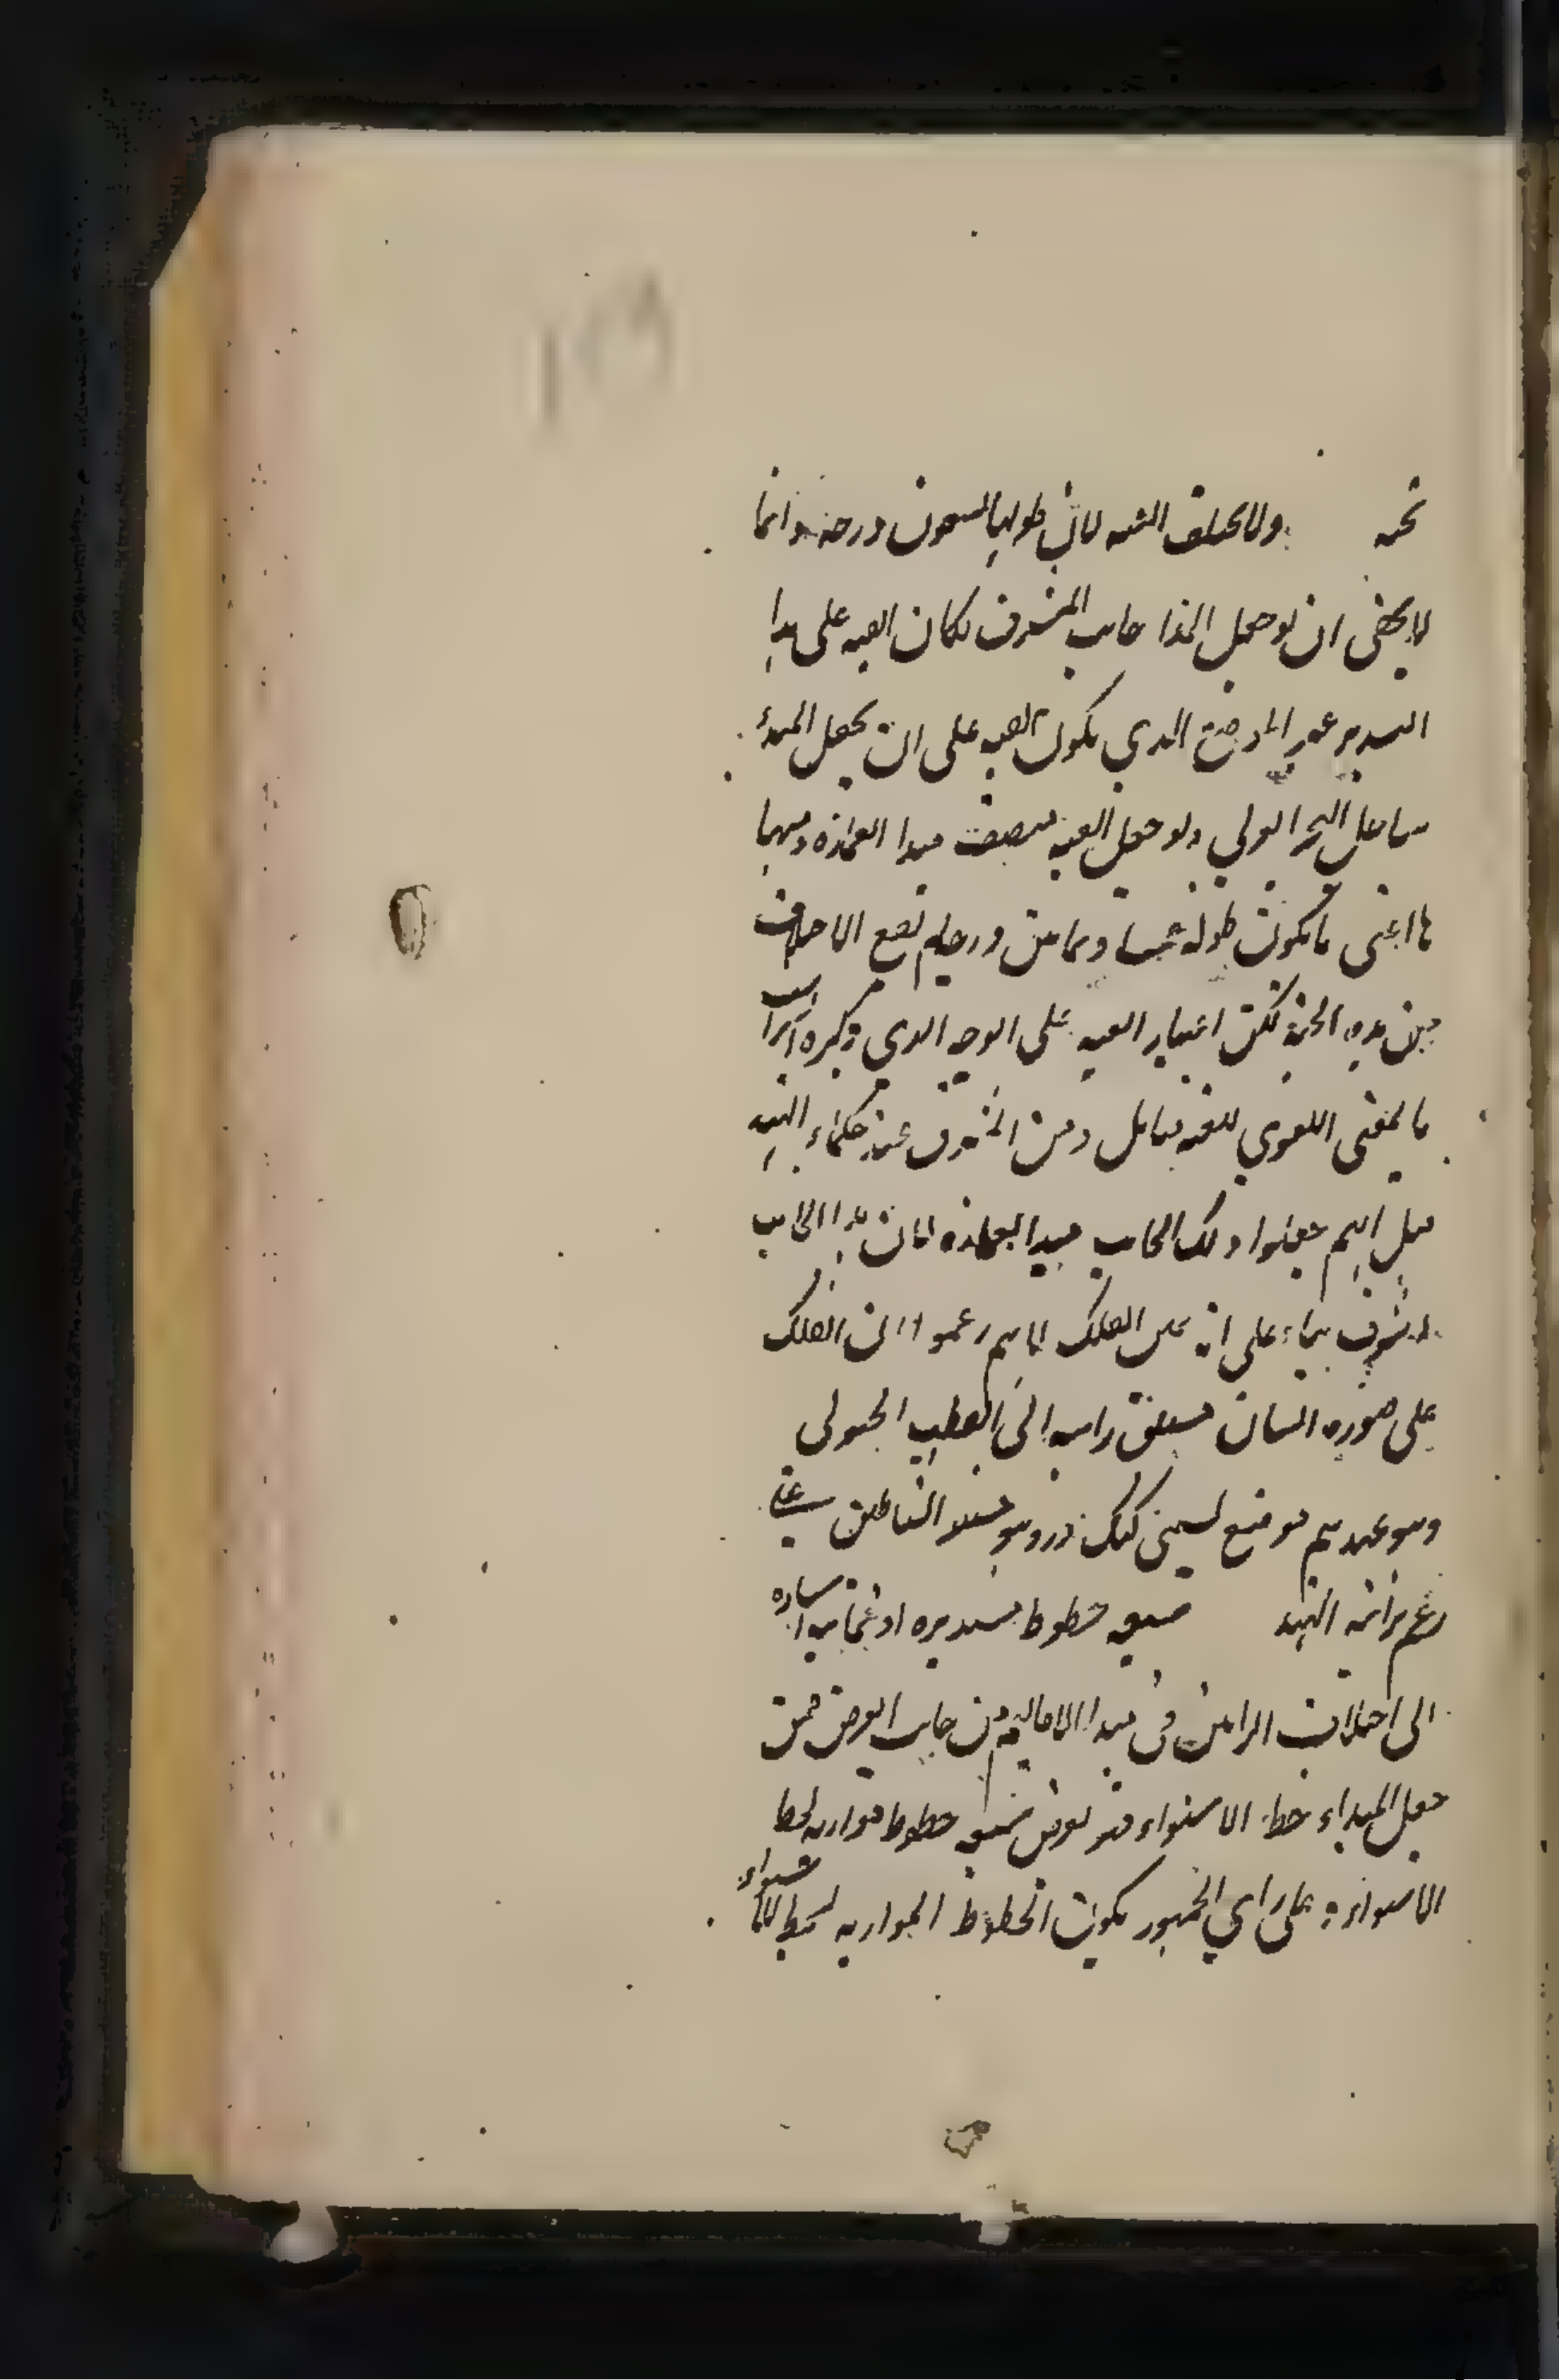 ولا يختلف القبة لان طولها تسعون درجة وانما
لا يخفى ان لو جعل المبدا جانب المشرق لكان القبة على هذا
التقدير غير الموضع الذي يكون القبة على ان يجعل المبدأ
ساحل البحر الغربي ولو جعل القبة منتصف مبدا العمارة ومنتها
ها اعني ما يكون طوله خمسا وثمانين درجة لم تقع الاختلاف
من هذه الجهة لكن اعتبار القبة على الوجه الذي ذكره انسب
بالمعنى اللغوي للقبة فتأمل ومن المشرق عند حكماء الهند
قيل انهم جعلوا ذلك الجانب مبدا العمارة لان هذا الجانب
اشرف بناء على انه يمين الفلك لانهم زعموا ان الفلك
على صورة انسان مستلق راسه الى القطب الجنوبي
وهو عندهم موضع يسمى كنك دز وهو مستقر الشياطين على
زعم براهمة الهند خطوط مستديرة او غيرها اشارة
الى اختلاف الرايين في مبدا الاقاليم من جانب العرض فمن
جعل المبداء خط الاستواء خطوط موازية لخط
الاستواء وعلى راي الجمهور يكون الخطوط الموازية لخط الاستواء